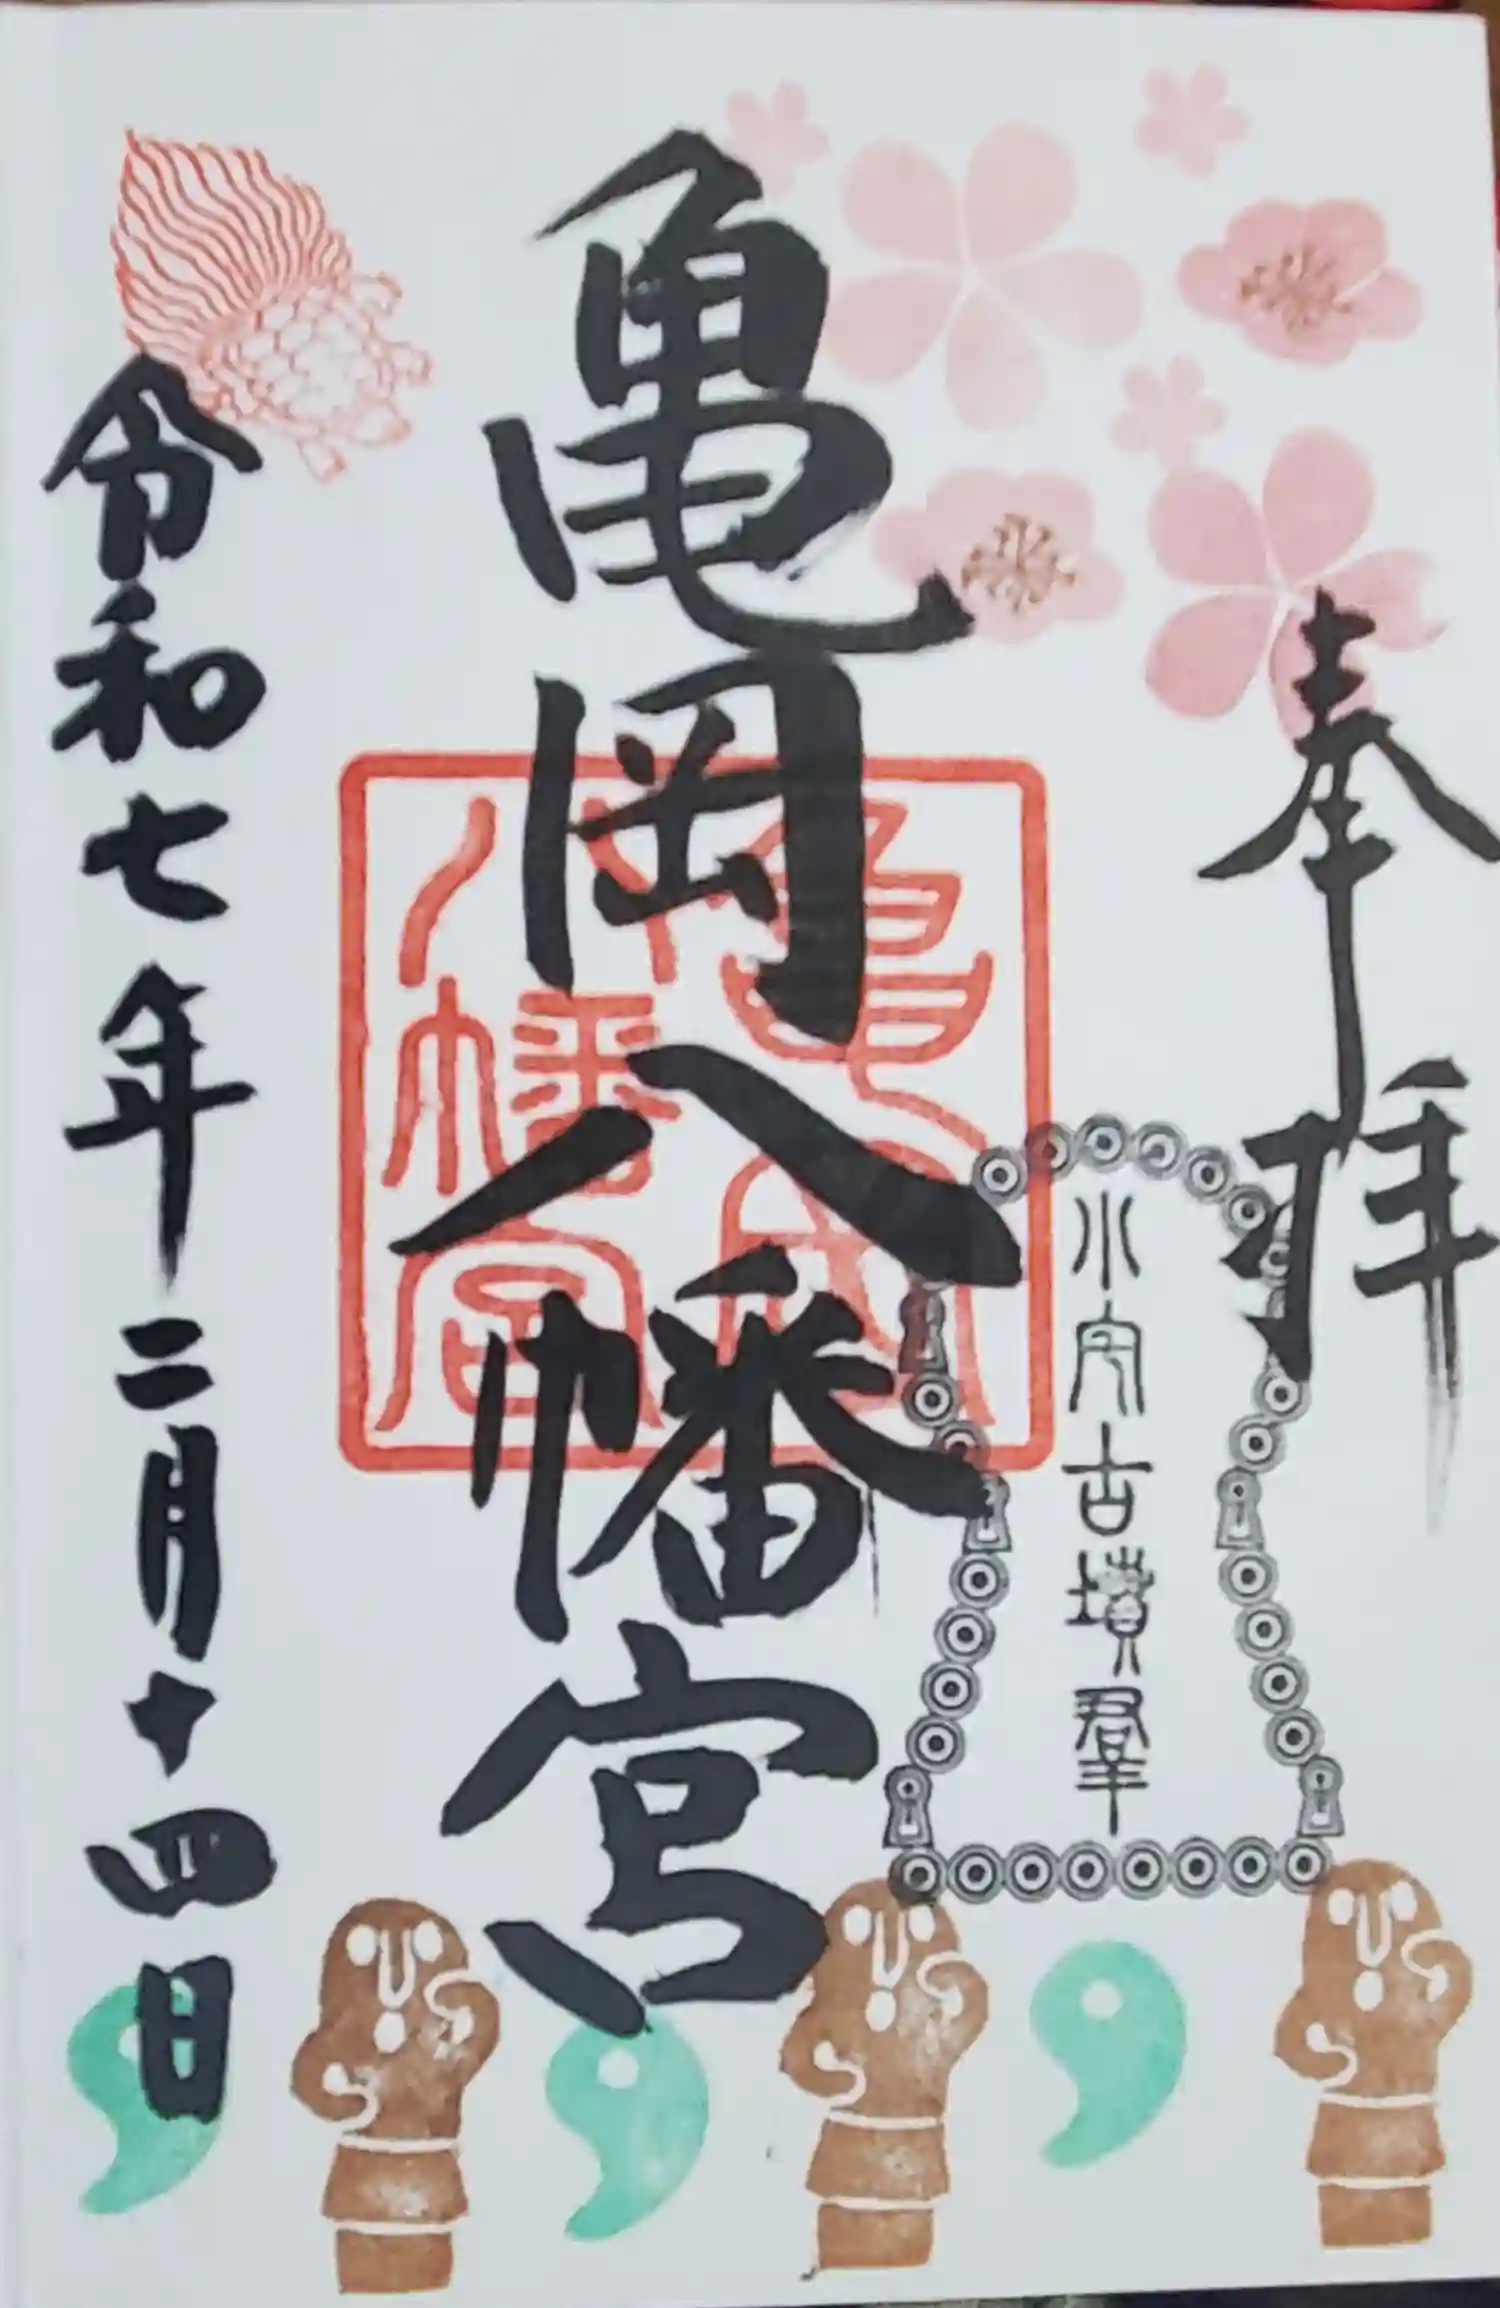 奉拝
亀岡八幡宮
亀岡
八幡宮
小宅古墳群
令和七年二月十四日